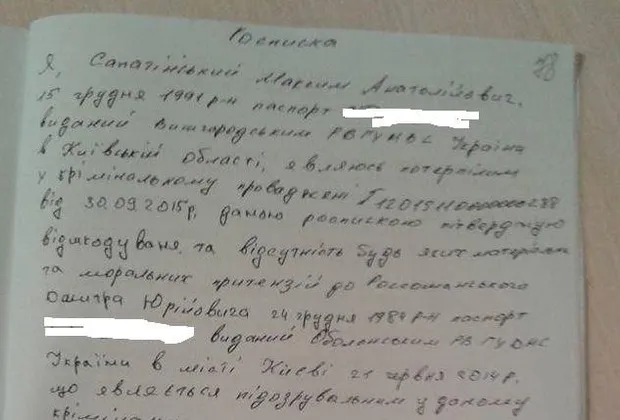 Росписка
Я, Сапатінський Максим Анатолійович,
15 грудня 1991 р-н паспорт
виданий Вишгородським РВ ГУ МВС Україна
в Київській області, являюсь потерпілим
у крімінальному проваджені
від 30.09.2015р, даною роспискою пітверджую
відшкодуваня та відсутність будь яких матеріальн
та моральних притензій до Россоманського
Дмитра Юрійовича 24 грудня 1984 р-н паспорт
виданий Оболонським РВ ГУ МВС
України в місті Києві 21 червня 2014 р.
що являється підозрувальним у даному